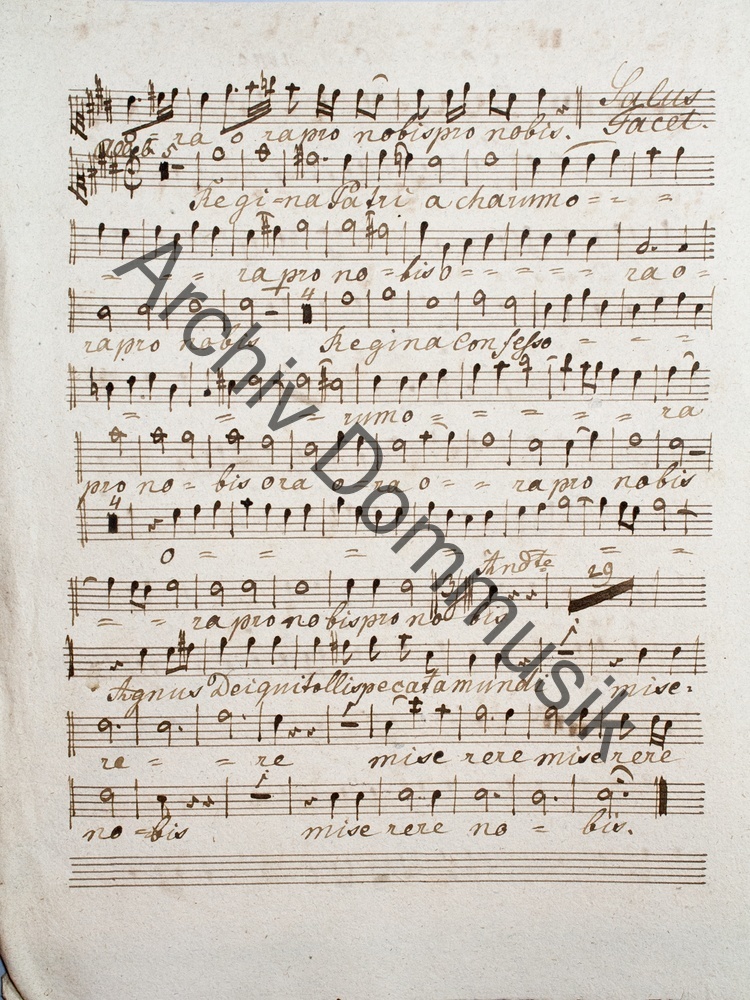 Salus
ra o ra pro nobis pro nobis. Tacet.
5
Regi=na Patri a charumo = = =
= = = ra pro no = bis o = = = = = ra o =
4
ra pro nobis Regina Confesso = = = =
= = = rumo = = = = = ra
pro no = bis o ra o = ra o = = ra pro nobis
4
o = = = = = = =
Andte 29
= = ra pro nobis pro no bis
1
Agnus Dei qui tollis pecata mundi mise=
1
re = = re mise rere mise rere
1
no = bis mise rere no = bis.
Archiv Dommusik